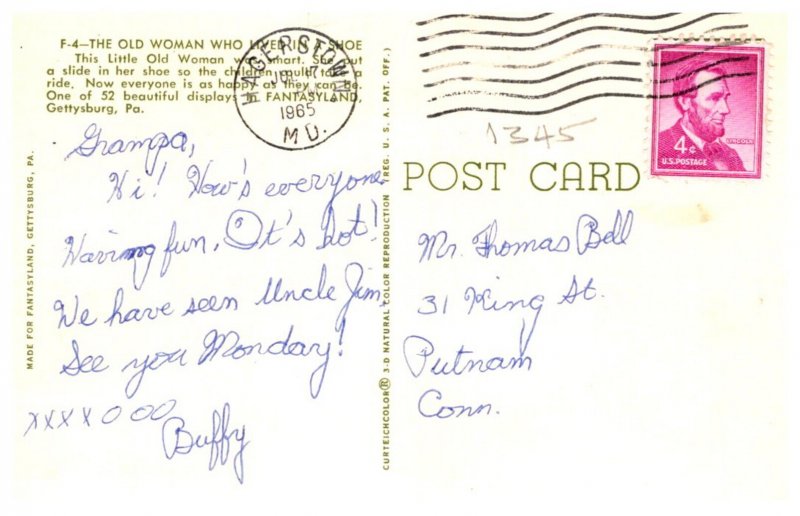 F-4—THE OLD WOMAN WHO LIVED IN A SHOE
This Little Old Woman was smart. She put
a slide in her shoe so the children could take a
ride. Now everyone is as happy as they can be.
One of 52 beautiful displays in FANTASYLAND,
Gettysburg, Pa.
HAGERSTOWN
1965
MD.
4¢
LINCOLN
U.S. POSTAGE
1345
POST CARD
Grampa,
Hi! How's everyone
Having fun. It's hot!
We have seen Uncle Jim,
See you Monday!
xxxx000
Buffy
Mr. Thomas Bell
31 King St.
Putnam
Conn.
MADE FOR FANTASYLAND, GETTYSBURG, PA.
CURTEICHCOLOR® 3-D NATURAL COLOR REPRODUCTION (REG. U.S.A. PAT. OFF.)